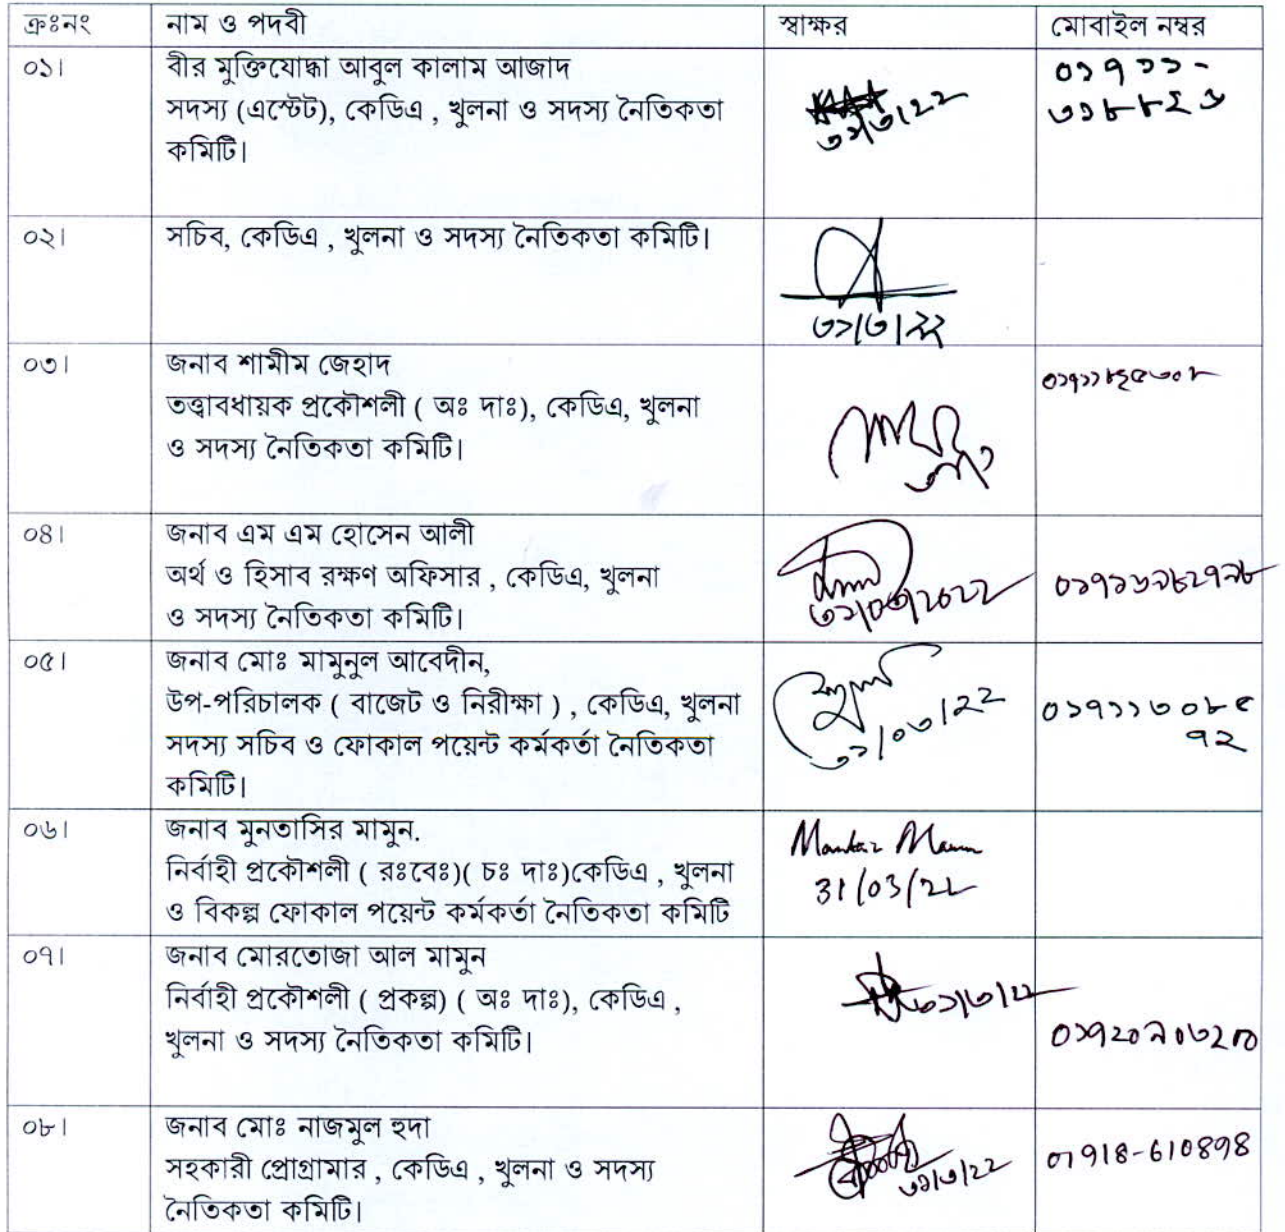 ক্রঃনং নাম ও পদবী স্বাক্ষর মোবাইল নম্বর
০১। বীর মুক্তিযোদ্ধা আবুল কালাম আজাদ
সদস্য (এস্টেট), কেডিএ , খুলনা ও সদস্য নৈতিকতা
কমিটি।
৩১/৩/২২
০১৭১১-
০২। সচিব, কেডিএ , খুলনা ও সদস্য নৈতিকতা কমিটি।
৩১/৩/২২
০৩। জনাব শামীম জেহাদ
তত্ত্বাবধায়ক প্রকৌশলী ( অঃ দাঃ), কেডিএ, খুলনা
ও সদস্য নৈতিকতা কমিটি।
০৪। জনাব এম এম হোসেন আলী
অর্থ ও হিসাব রক্ষণ অফিসার , কেডিএ, খুলনা
ও সদস্য নৈতিকতা কমিটি।
৩১/০৩/২০২২
০৫। জনাব মোঃ মামুনুল আবেদীন,
উপ-পরিচালক ( বাজেট ও নিরীক্ষা ) , কেডিএ, খুলনা
সদস্য সচিব ও ফোকাল পয়েন্ট কর্মকর্তা নৈতিকতা
কমিটি।
৩১/০৩/২২
০১৭১১৩০৮৫
৭২
০৬। জনাব মুনতাসির মামুন.
নির্বাহী প্রকৌশলী ( রঃবেঃ)( চঃ দাঃ)কেডিএ , খুলনা
ও বিকল্প ফোকাল পয়েন্ট কর্মকর্তা নৈতিকতা কমিটি
31/03/22
০৭। জনাব মোরতোজা আল মামুন
নির্বাহী প্রকৌশলী ( প্রকল্প) ( অঃ দাঃ), কেডিএ ,
খুলনা ও সদস্য নৈতিকতা কমিটি।
৩১/৩/২২
০৮। জনাব মোঃ নাজমুল হুদা
সহকারী প্রোগ্রামার , কেডিএ , খুলনা ও সদস্য
নৈতিকতা কমিটি।
৩১/৩/২২
01918-610898